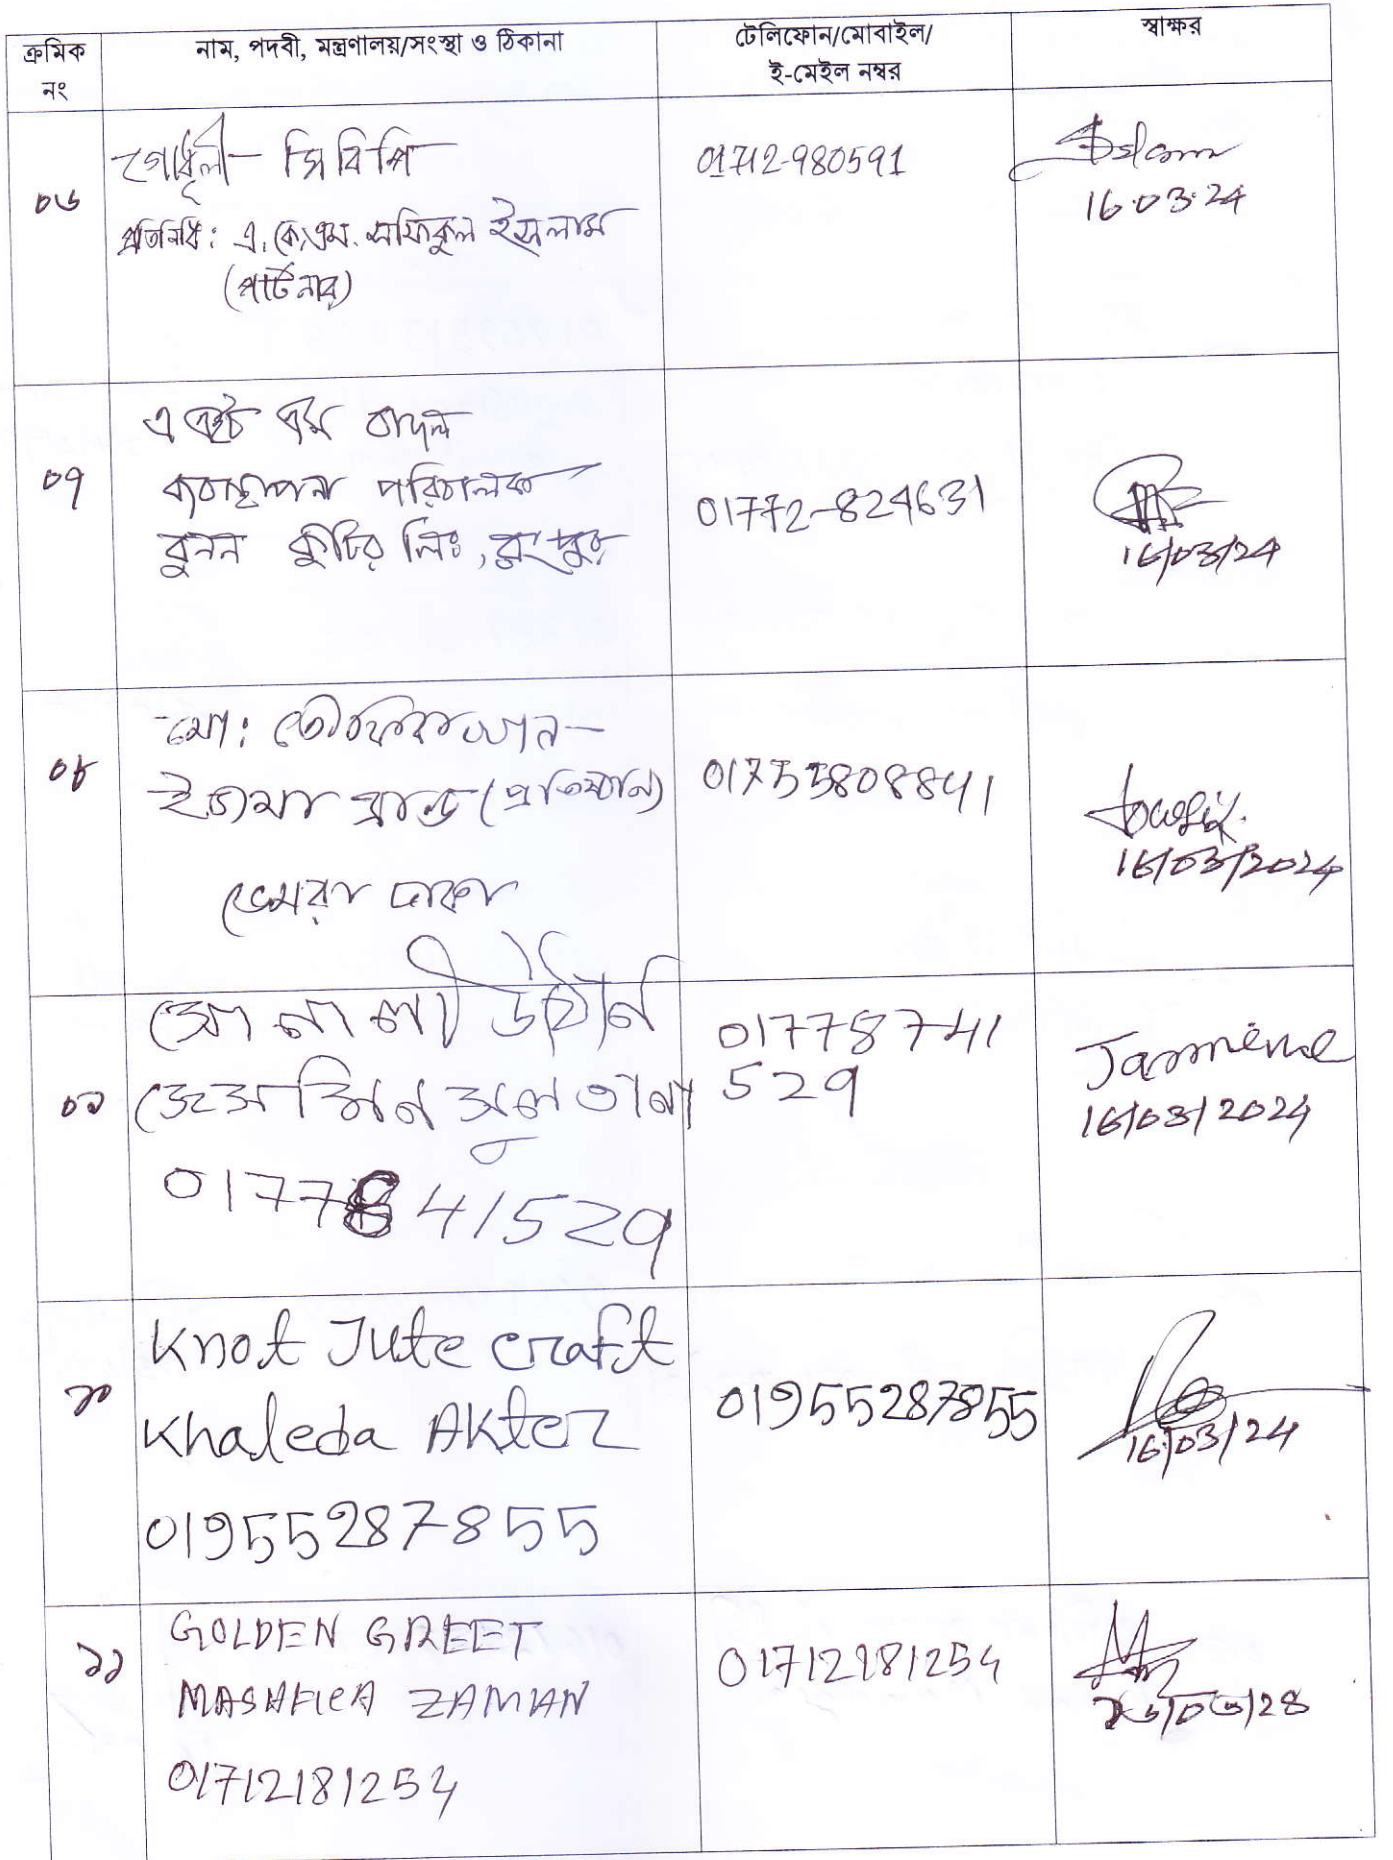 ক্রমিক নং
নাম, পদবী, মন্ত্রণালয়/সংস্থা ও ঠিকানা
টেলিফোন/মোবাইল/
ই-মেইল নম্বর
স্বাক্ষর
০৬
গোধূলী - সি বি পি
প্রতিনিধি: এ. কে. এম. সফিকুল ইসলাম
(পার্টনার)
01712-980591
Islam
16.03.24
০৭
এ এইচ এম বাদল
ব্যবস্থাপনা পরিচালক
বুনন কুটির লিঃ, রংপুর
01772-824631
16/03/24
০৮
মো:
(প্রতিষ্ঠান)
ডেমরা ঢাকা
01755808841
16/03/2024
০৯
সোনালী
জেসমিন সুলতানা
0177841529
01778741
529
Jasmine
16/03/2024
১০
Knot Jute craft
Khaleda Akter
01955287855
01955287855
16/03/24
১১
GOLDEN GREET
ZAMAN
01712181254
01712181254